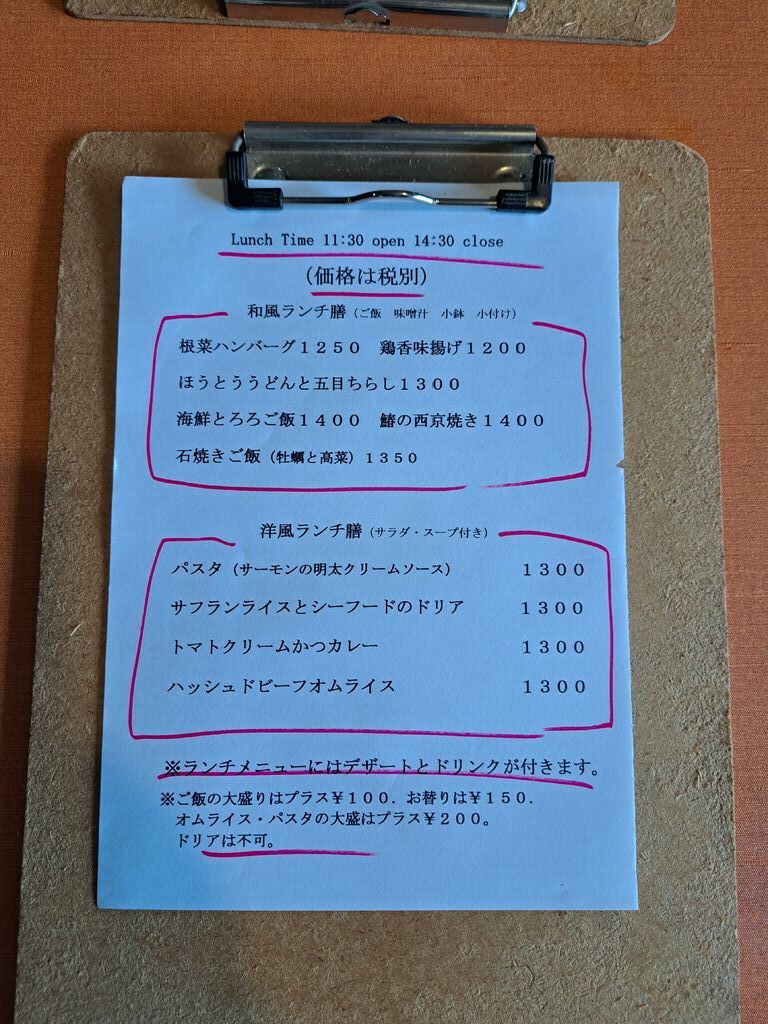 Lunch Time 11:30 open 14:30 close
（価格は税別）
和風ランチ膳（ご飯　味噌汁　小鉢　小付け）
根菜ハンバーグ１２５０　鶏香味揚げ１２００
ほうとううどんと五目ちらし１３００
海鮮とろろご飯１４００　鰆の西京焼き１４００
石焼きご飯（牡蠣と高菜）１３５０
洋風ランチ膳（サラダ・スープ付き）
パスタ（サーモンの明太クリームソース）　１３００
サフランライスとシーフードのドリア　１３００
トマトクリームかつカレー　１３００
ハッシュドビーフオムライス　１３００
※ランチメニューにはデザートとドリンクが付きます。
※ご飯の大盛りはプラス￥１００．お替りは￥１５０．
オムライス・パスタの大盛はプラス￥２００。
ドリアは不可。